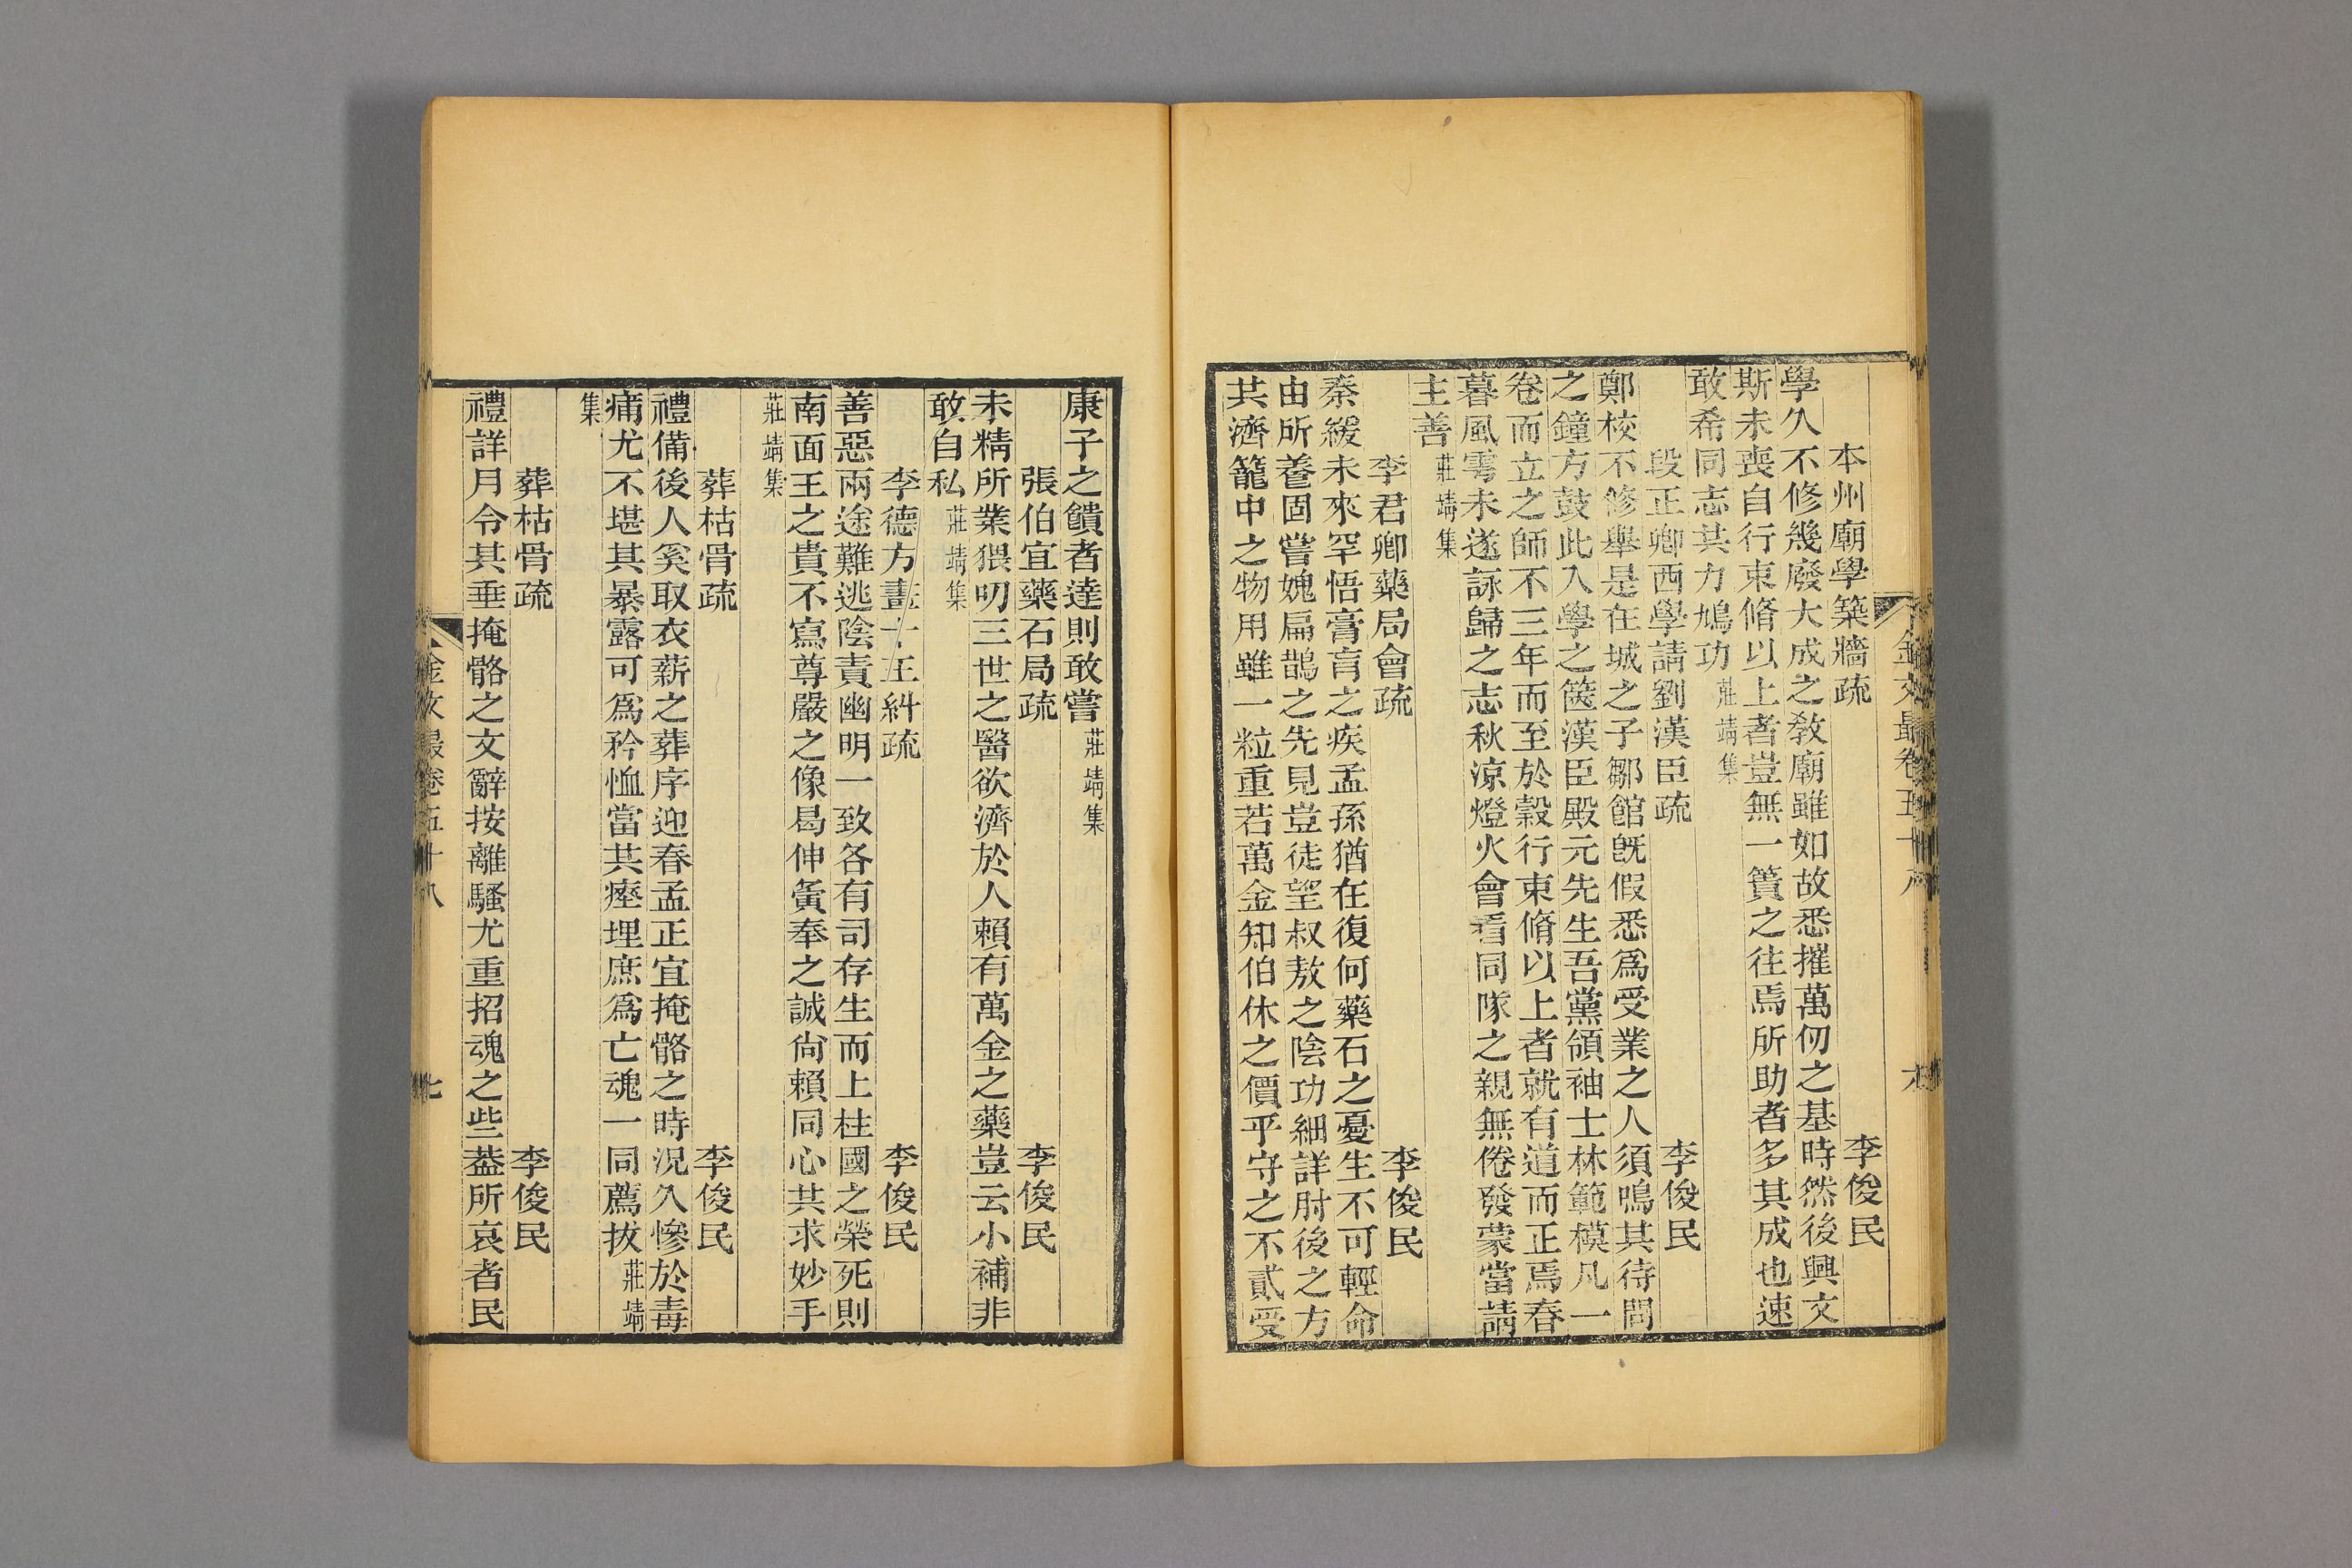 本州廟學築牆疏 李俊民
學久不修幾廢大成之教廟雖如故悉摧萬仞之基時然後興文
斯未喪自行束脩以上者豈無一簣之往焉所助者多其成也速
敢希同志共力鳩功莊靖集
段正卿西學請劉漢臣疏 李俊民
鄭校不修舉是在城之子鄒館旣假悉爲受業之人須鳴其待問
之鐘方鼓此入學之篋漢臣殿元先生吾黨領袖士林範模凡一
卷而立之師不三年而至於穀行束脩以上者就有道而正焉春
暮風雩未遂詠歸之志秋涼燈火會看同隊之親無倦發蒙當請
主善莊靖集
李君卿藥局會疏 李俊民
秦緩未來罕悟膏肓之疾孟孫猶在復何藥石之憂生不可輕命
由所養固嘗媿扁鵲之先見豈徒望叔敖之陰功細詳肘後之方
共濟籠中之物用雖一粒重若萬金知伯休之價乎守之不貳受
金文最卷五十八 六
康子之饋者達則敢嘗莊靖集
張伯宜藥石局疏 李俊民
未精所業猥叨三世之醫欲濟於人賴有萬金之藥豈云小補非
敢自私莊靖集
李德方畫十王糾疏 李俊民
善惡兩途難逃陰責幽明一致各有司存生而上柱國之榮死則
南面王之貴不寫尊嚴之像曷伸寅奉之誠尙賴同心共求妙手
莊靖集
葬枯骨疏 李俊民
禮備後人奚取衣薪之葬序迎春孟正宜掩骼之時況久慘於毒
痡尤不堪其暴露可爲矜恤當共瘞埋庶爲亡魂一同薦拔莊靖
集
葬枯骨疏 李俊民
禮詳月令其垂掩骼之文辭按離騷尤重招魂之些葢所哀者民
金文最卷五十八 七